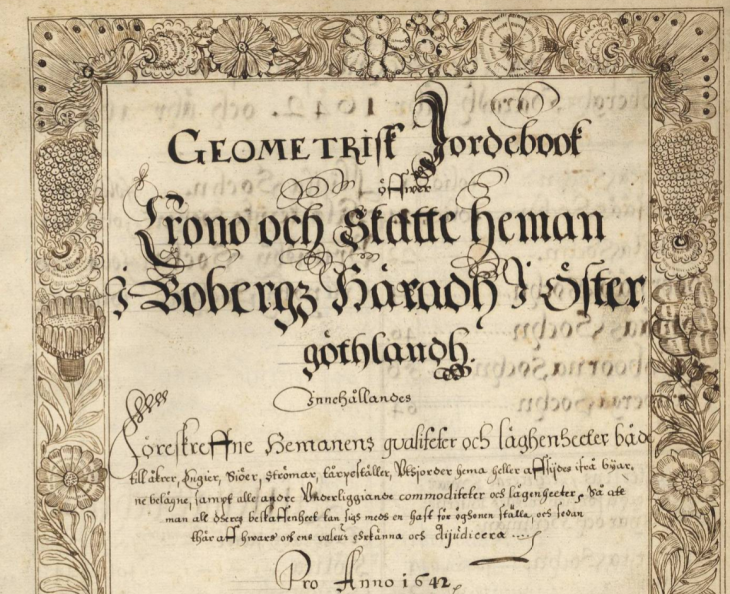 GEOMETRISK Jordebook
öffwer
Crono och Skatte heman
I Bobergz Häradh I Öster
göthlandh.
Innehållandes
Föreskreffne Hemanens qualiteter och läghenheeter både
till åkrer, Engier, Siöer, Strömar, tärpeställer, Utsjorder hema heller affsijdes ifrå byar.
ne belägne, sampt alle andre Underliggiande commoditeter och lägenheeter, Så att
man all theras beskaffenheet kan sigh medh en hast för öghonen ställa, och sedan
thär aff hwars och ens valeur erkänna och dijudicera
Pro Anno 1642.